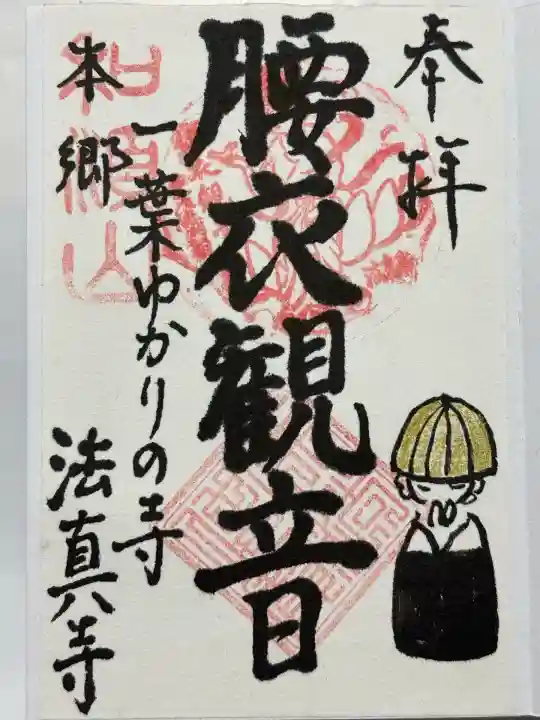 奉拝
腰衣観音
一葉ゆかりの寺
本郷
法真寺